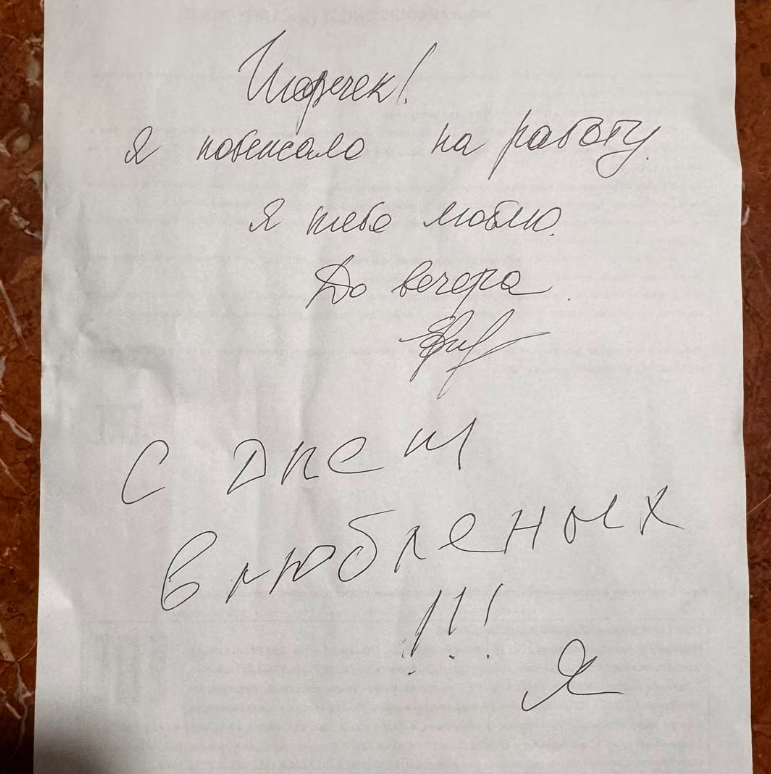 Игоречек!
Я побежала на работу.
Я тебя люблю.
До вечера.
С Днем
влюбленых
!!!
Я